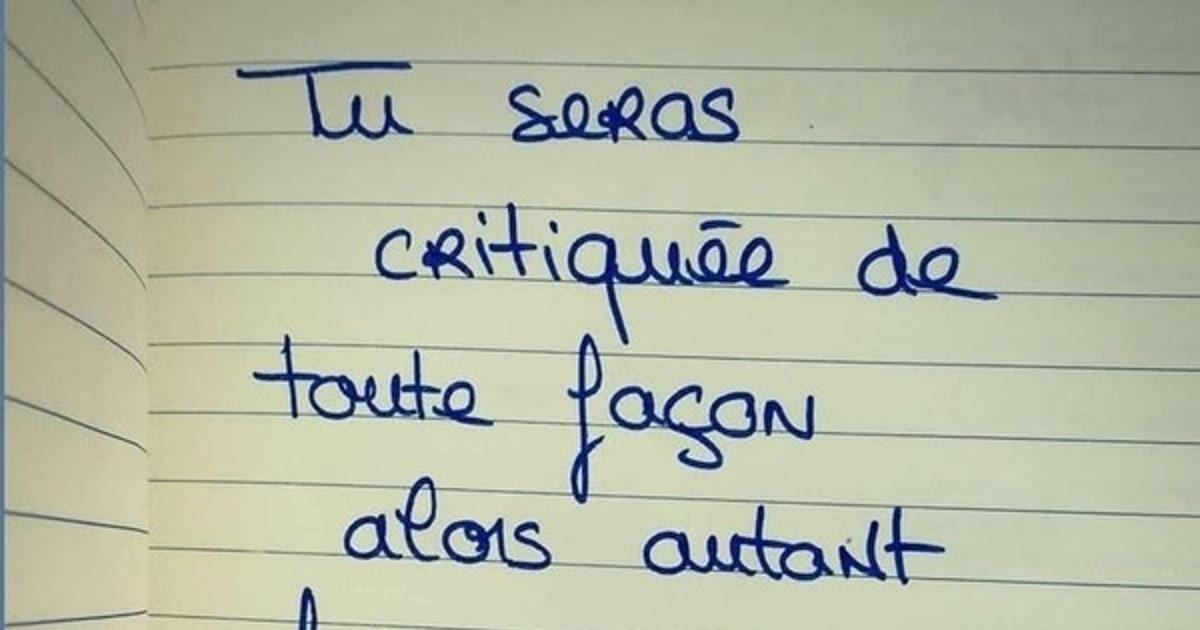 Tu seras
critiquée de
toute façon
alors autant